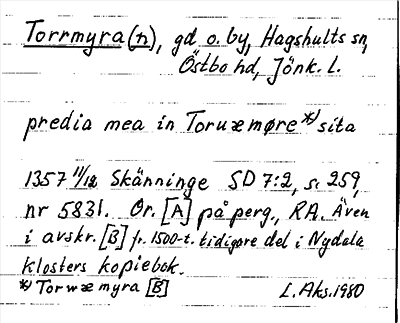 Torrmyra(n), gd o. by, Hagshults sn,
Östbo hd, Jönk. l.
predia mea in Toruæmøre *) sita
1357 11/12 Skänninge SD 7:2, s. 259,
nr 5831. Or. [A] på perg., RA. Även
i avskr. [B] fr. 1500-t. tidigare del i Nydala
klosters kopiebok.
*) Torwæmyra [B] L. Aks. 1980